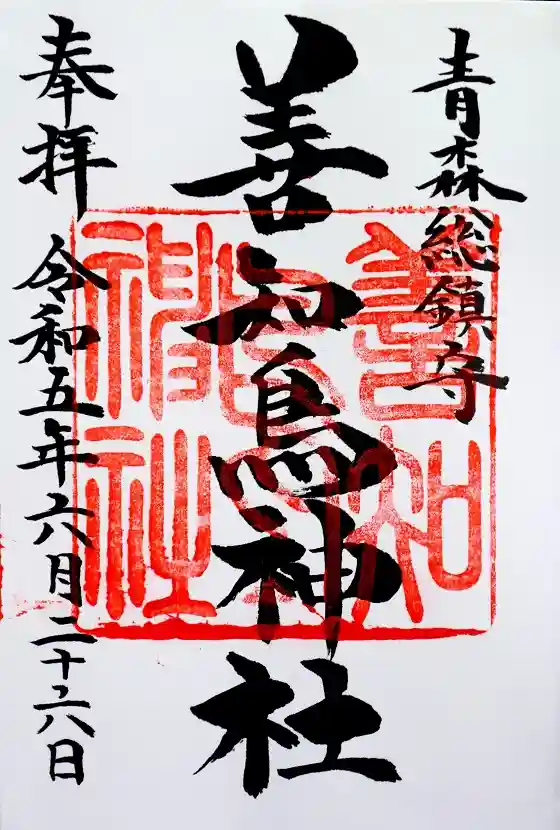 青森総鎮守
善知鳥神社
奉拝
令和五年六月二十六日
善知
鳥
神社